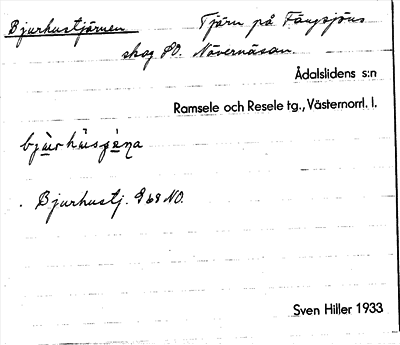 Bjurhustjärnen Tjärn på Fångsjöns
skog SO. Nävernäsan.
Ådalslidens s:n
Ramsele och Resele tg., Västernorrl. l.
Bjurhustj. 968 NO.
Sven Hiller 1933